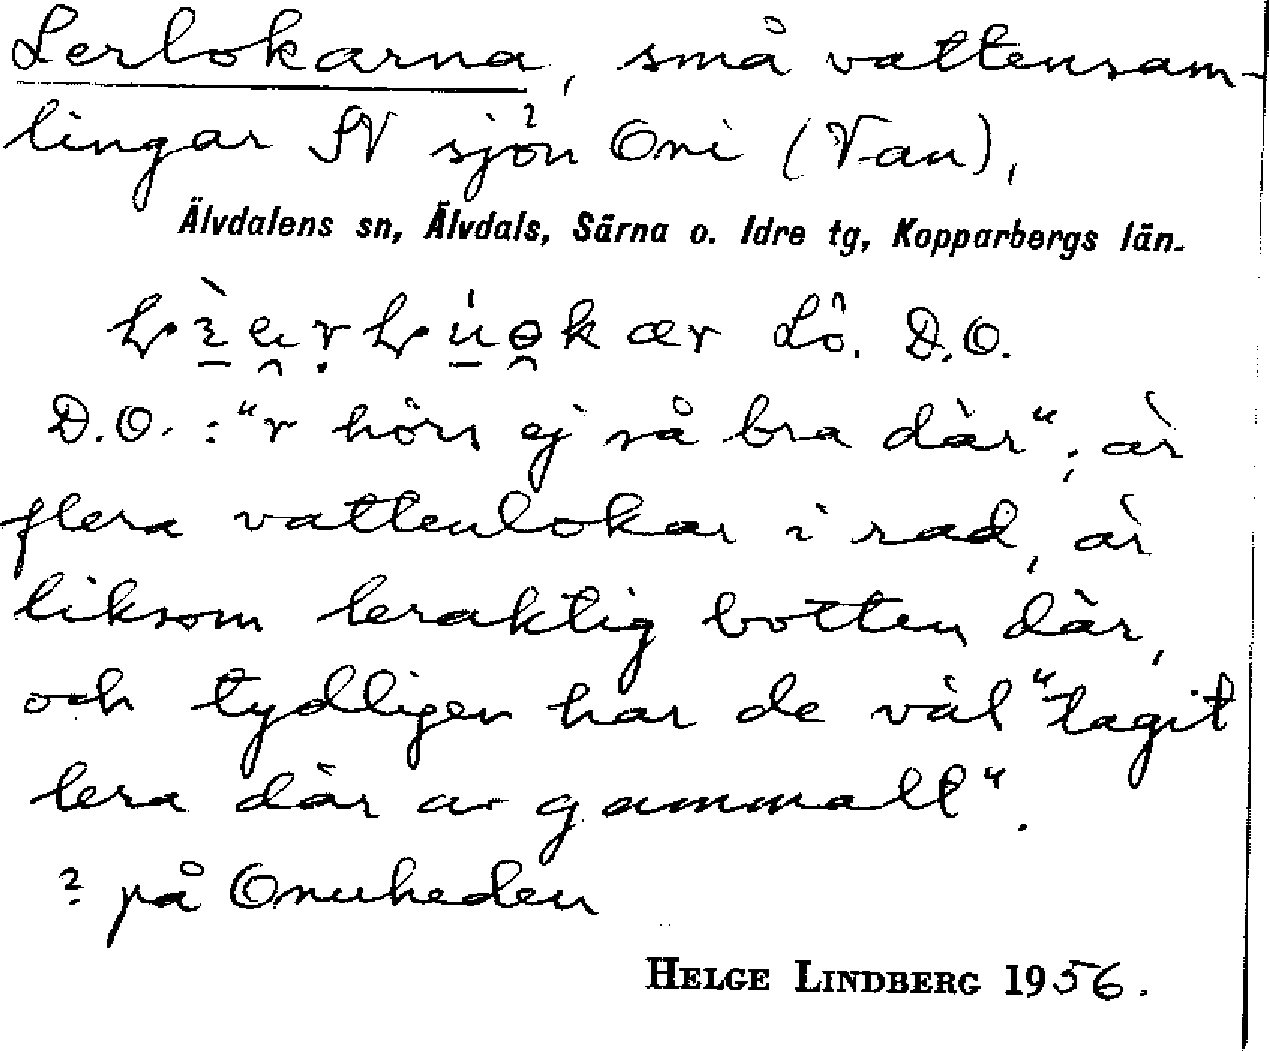 Lerlokarna, små vattensam-
lingar SV sjön Oni (Van),
Älvdalens sn, Älvdals, Särna o. Idre tg, Kopparbergs län.
Lö. D.O.
D.O.: "r hörs ej så bra där"; är
flera vattenlokar i rad, är
liksom leraktig botten där,
och tydligen har de väl "tagit
lera där av gammalt".
? på Onuheden
HELGE LINDBERG 1956.